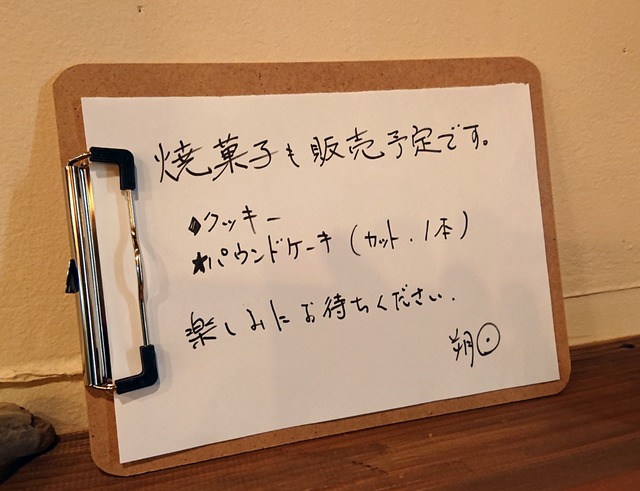 焼菓子も販売予定です。
♦クッキー
★パウンドケーキ（カット・1本）
楽しみにお待ちください.
朔☉